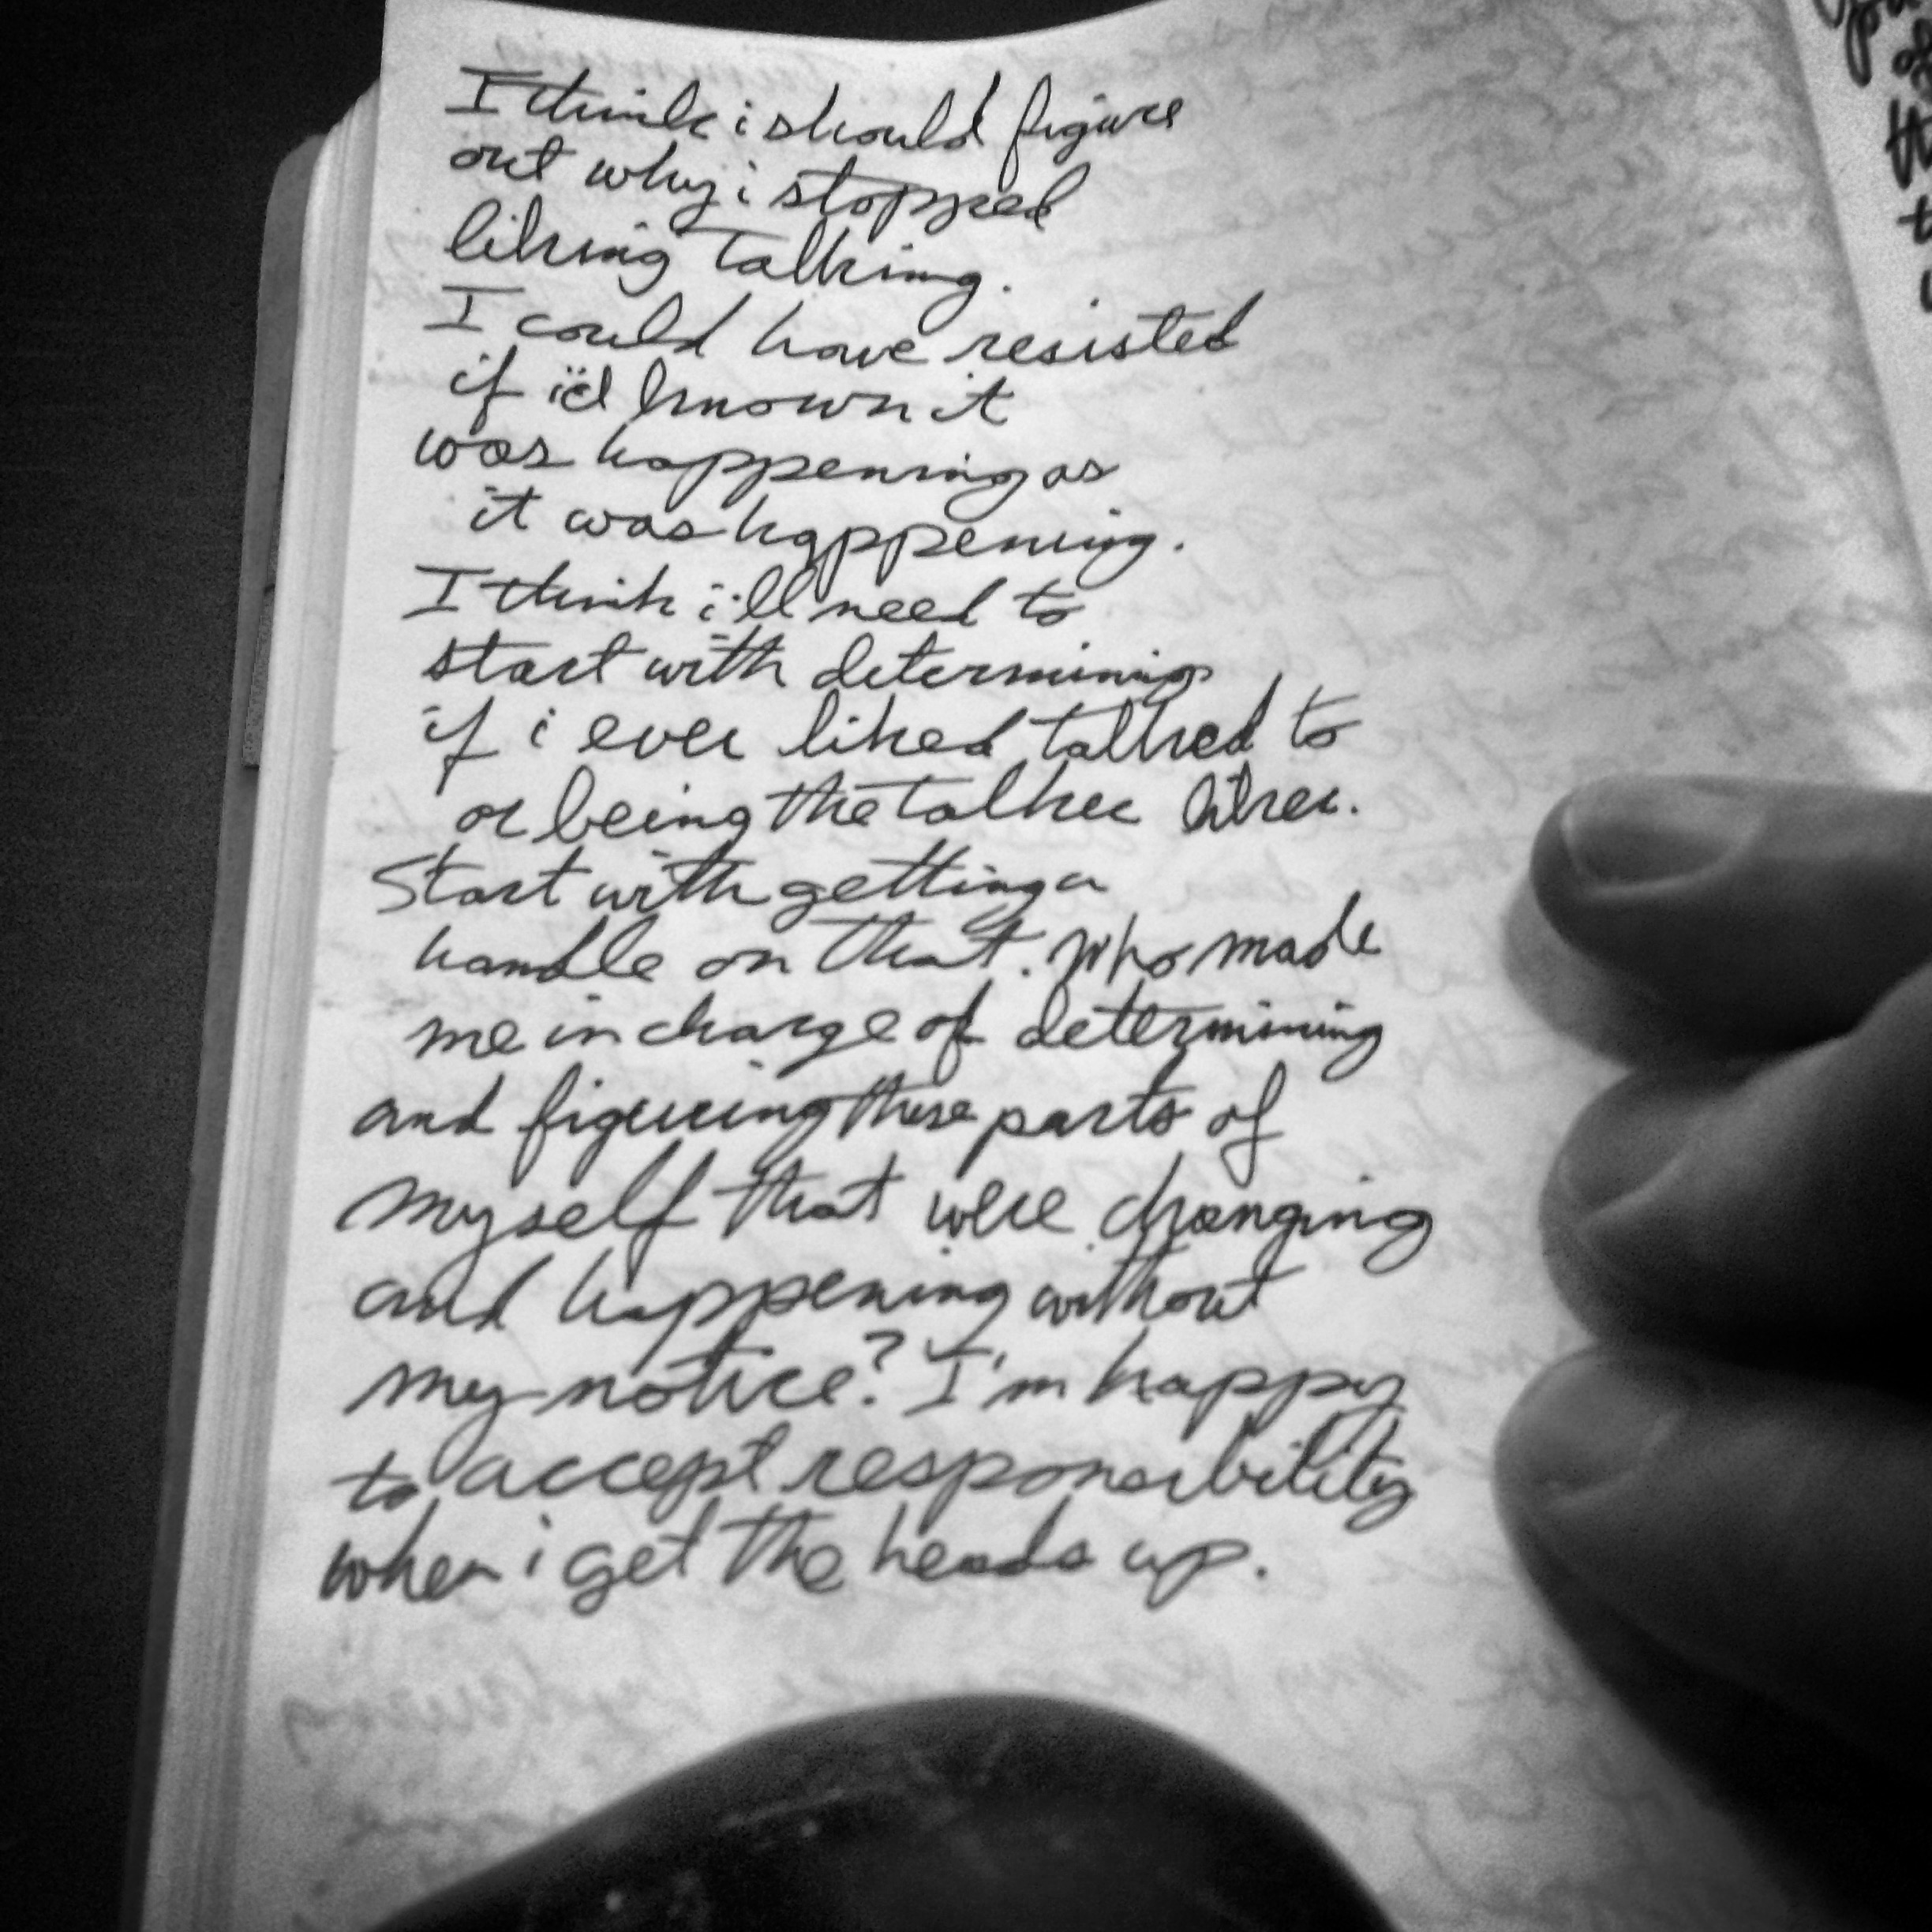 I think i should figure
out why i stopped
liking talking.
I could have resisted
if i'd known it
was happening as
it was happening.
I think i'll need to
start with determining
if i ever liked talked to
or being the talker liker.
Start with getting a
handle on that. Who made
me in charge of determining
and figuring these parts of
myself that were changing
and happening without
my notice? I'm happy
to accept responsibility
when i get the heads up.